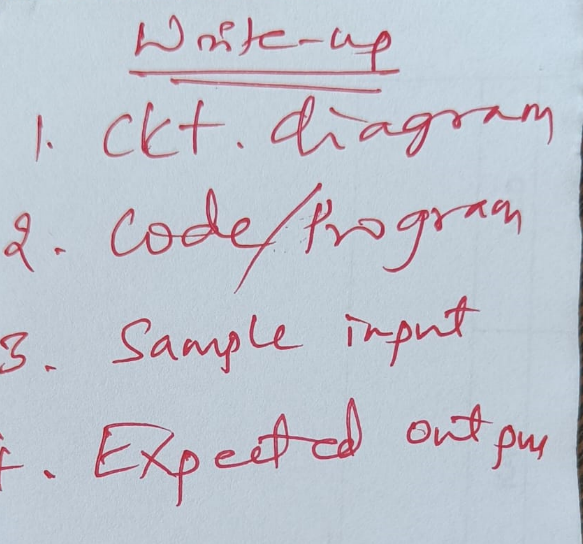 Write-up
1. Ckt. diagram
2. Code/Program
3. Sample input
4. Expected outpu